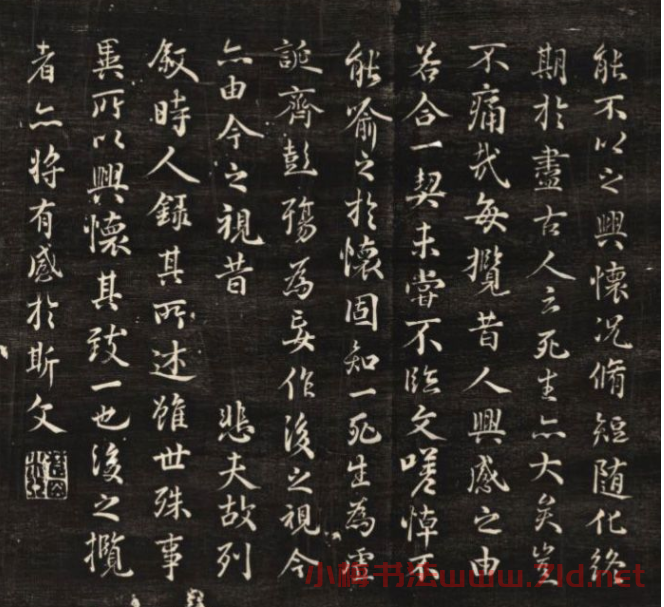 能不以之興懷况脩短随化終
期於盡古人云死生亦大矣豈
不痛哉每攬昔人興感之由
若合一契未嘗不臨文嗟悼不
能喻之於懷固知一死生為虛
誕齊彭殤為妄作後之視今
亦由今之視昔 悲夫故列
叙時人錄其所述雖世殊事
異所以興懷其致一也後之攬
者亦將有感於斯文
小楷书法www.7ld.net